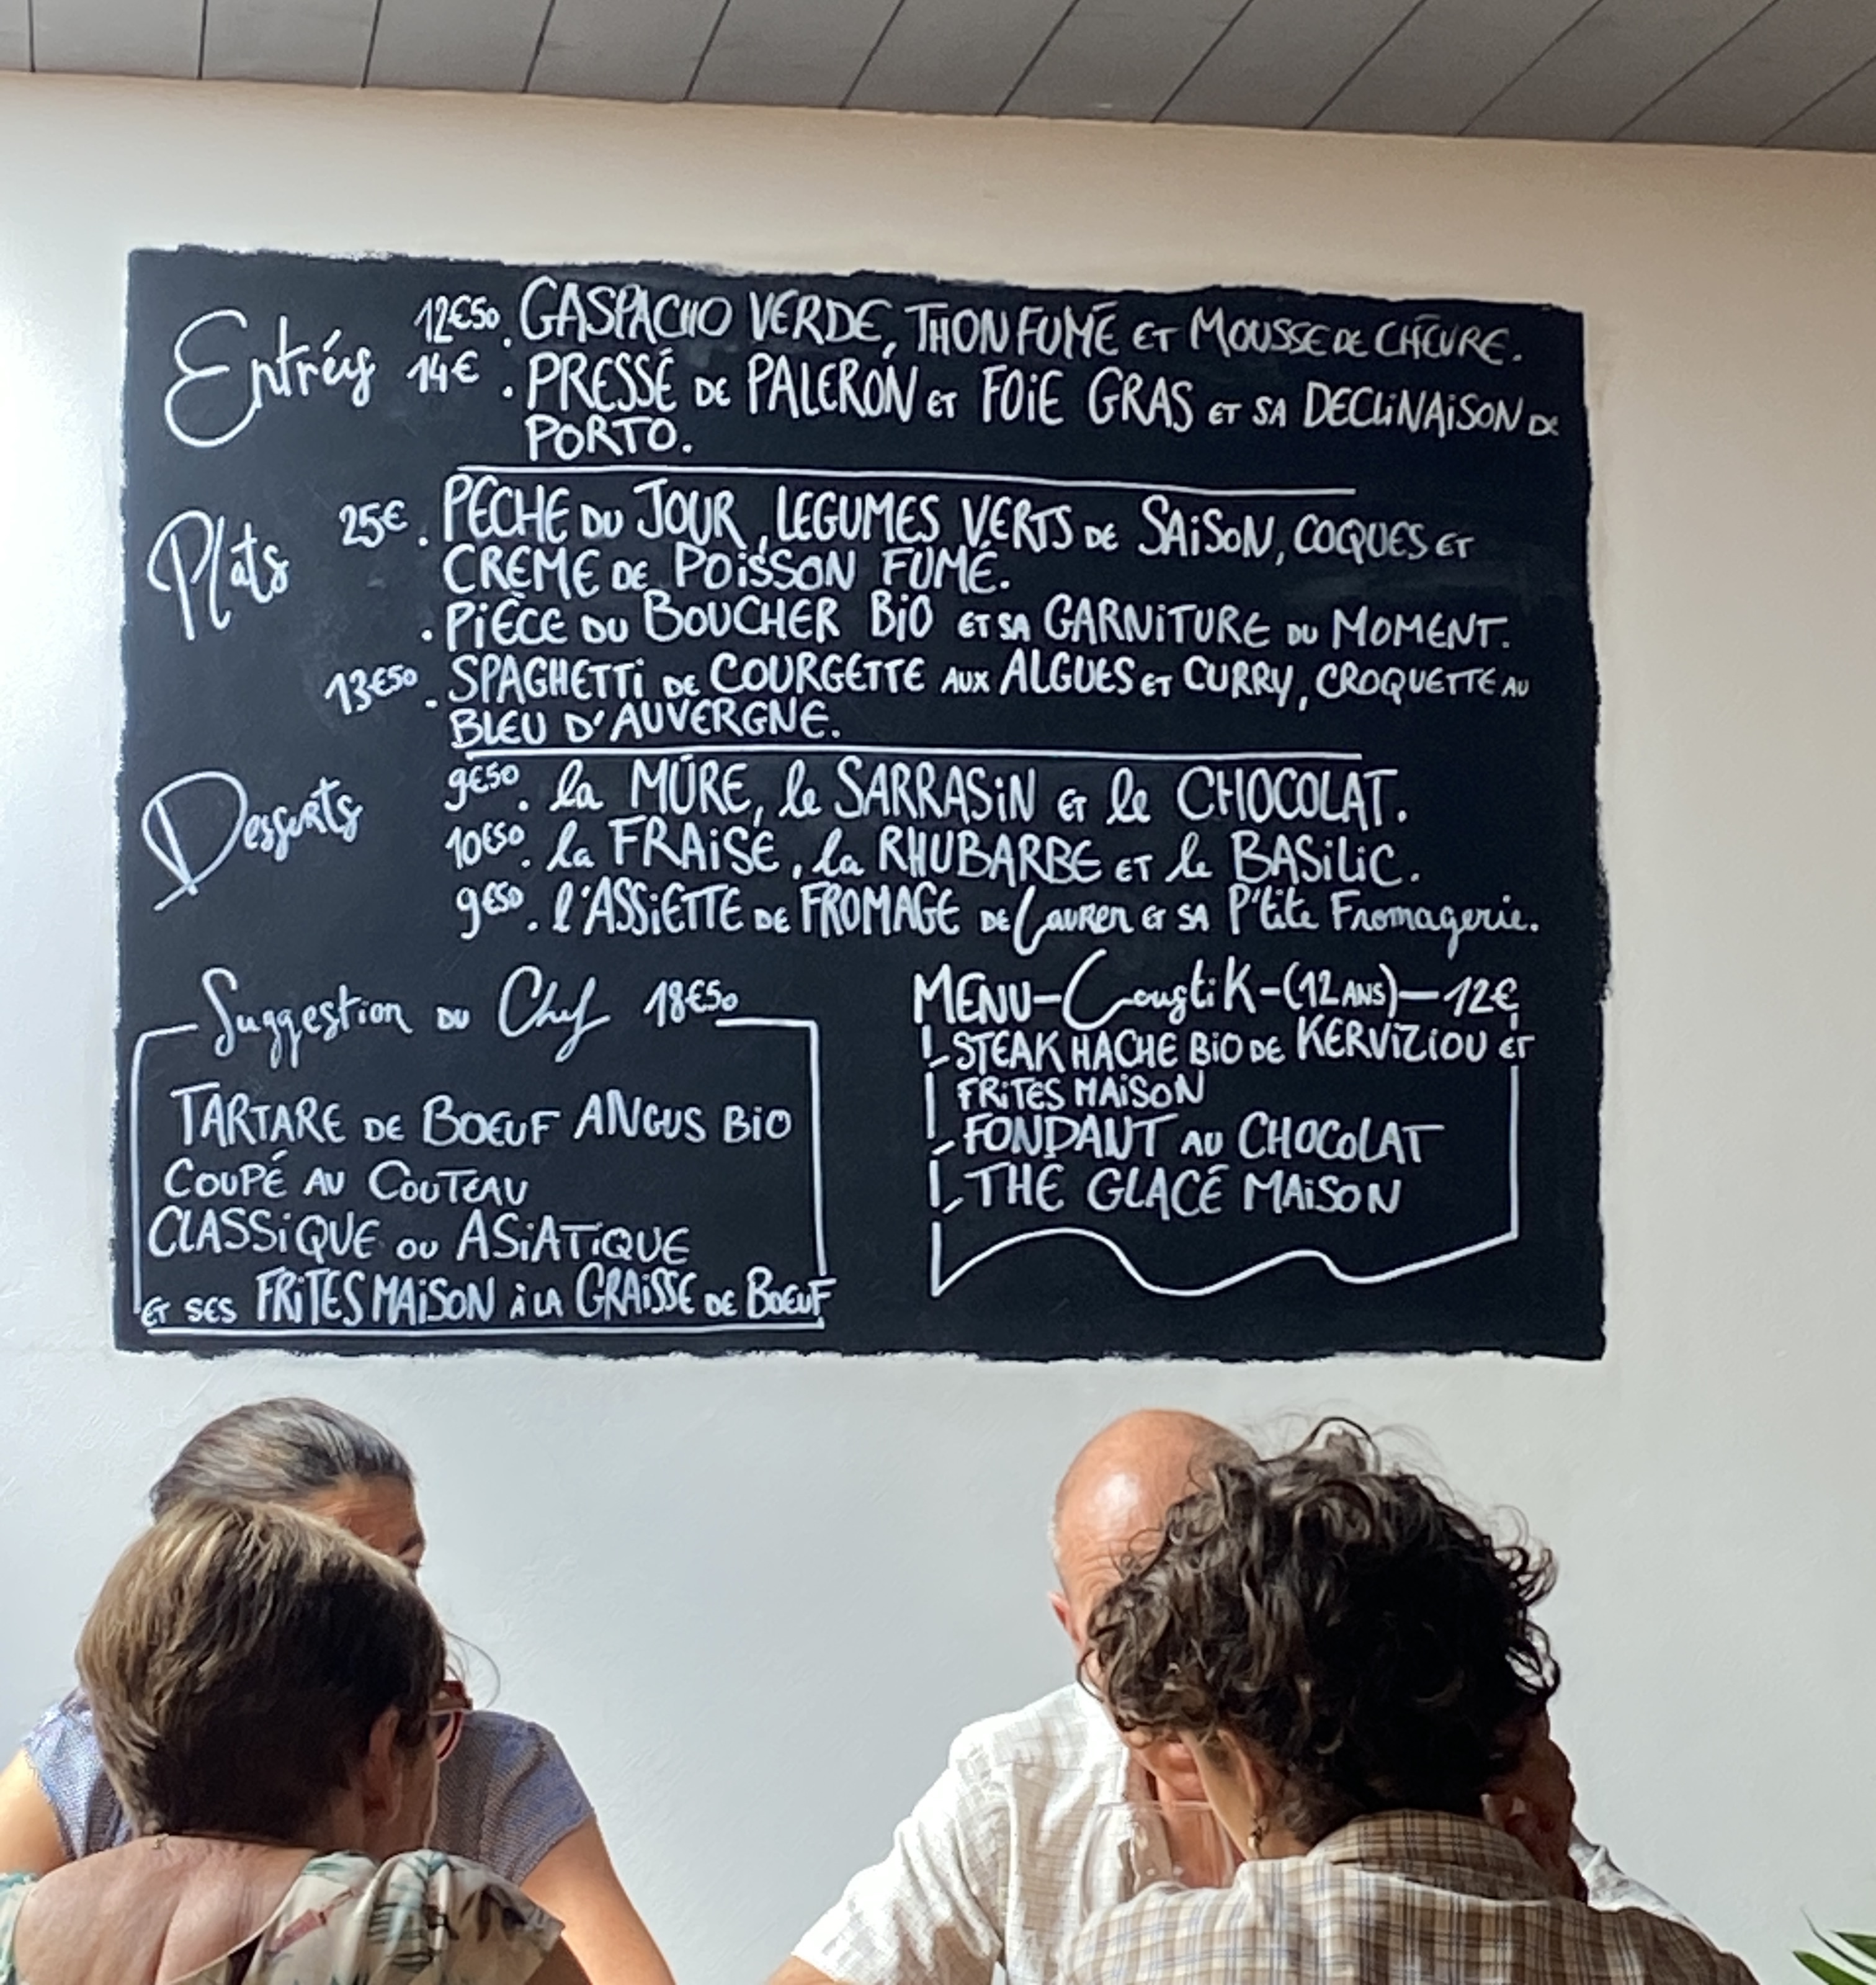 Entrées 12€50 . GASPACHO VERDE, THON FUMÉ ET MOUSSE DE CHÈVRE.
14€ . PRESSÉ DE PALERON ET FOIE GRAS ET SA DECLINAISON DE
PORTO.
Plats 25€ . PECHE DU JOUR, LEGUMES VERTS DE SAISON, COQUES ET
CREME DE POISSON FUMÉ.
. PIÈCE DU BOUCHER BIO ET SA GARNITURE DU MOMENT.
13€50 . SPAGHETTI DE COURGETTE AUX ALGUES ET CURRY, CROQUETTE AU
BLEU D'AUVERGNE.
Desserts 9€50 . la MÛRE, le SARRASIN ET le CHOCOLAT.
10€50 . la FRAISE, la RHUBARBE ET le BASILIC.
9€50 . l'ASSIETTE DE FROMAGE DE Lauren ET SA P'tite Fromagerie.
Suggestion DU Chef 18€50
TARTARE DE BOEUF ANGUS BIO
COUPÉ AU COUTEAU
CLASSIQUE OU ASIATIQUE
ET SES FRITES MAISON À LA GRAISSE DE BOEUF
MENU - CoustiK - (12 ANS) - 12€
- STEAK HACHE BIO DE KERVIZIOU ET
FRITES MAISON
- FONDANT AU CHOCOLAT
- THÉ GLACÉ MAISON